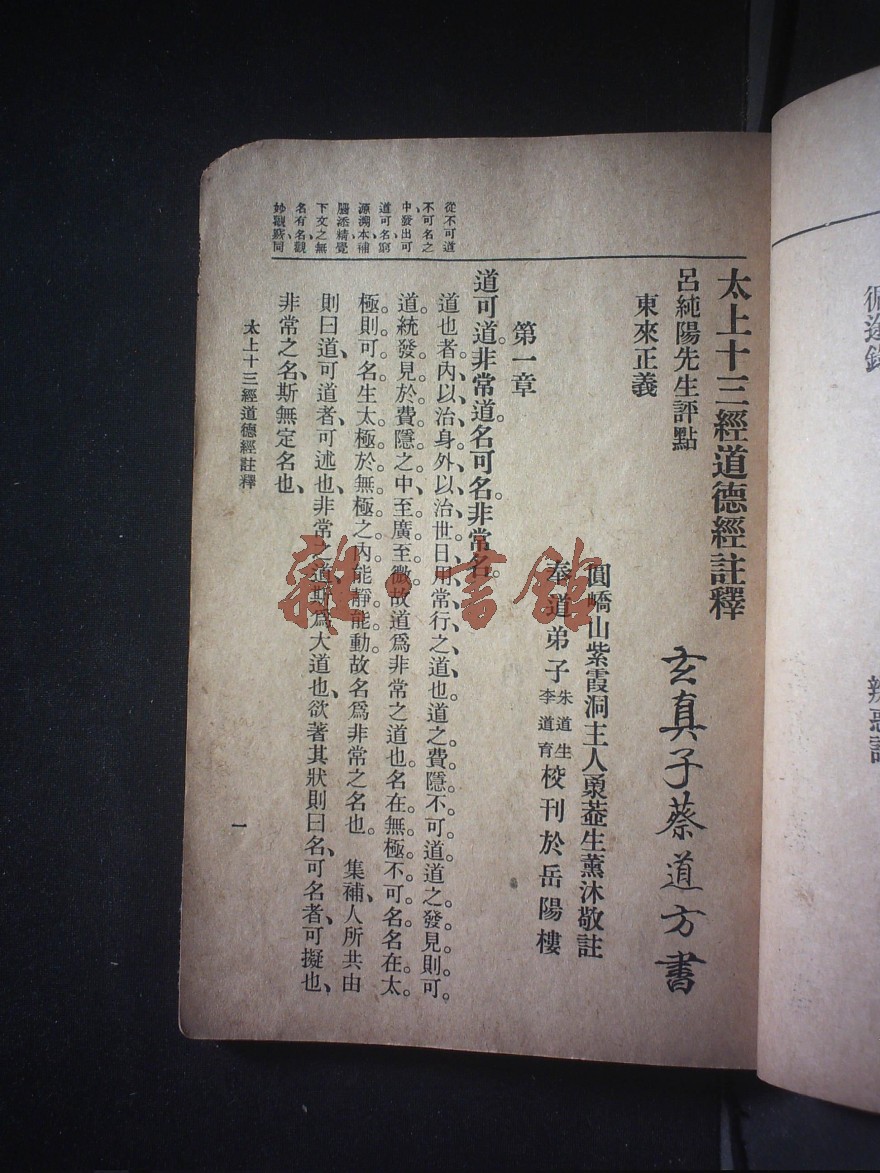 太上十三經道德經註釋
玄真子蔡道方書
呂純陽先生評點
東來正義
圓嶠山紫霞洞主人
生薰沐敬註
奉道弟子朱道生李道育校刊於岳陽樓
第一章
道可道。非常道。名可名。非常名。
道也者、內以治身、外以治世、日用常行之道也。道之費隱不可道。道之發見則可。
道統發見於費隱之中。至廣至微。故道爲非常之道也。名在無極不可名。名在太
極則可名。生太極於無極之內。能靜能動。故名爲非常之名也。 集補人所共由
則曰道、可道者、可述也、非常之道、斯爲大道也、欲著其狀則曰名、可名者、可擬也、
非常之名、斯無定名也、
從不可道
不可名之
中發出可
道可名、窮
源溯本、補
下文之無
名有名、觀
太上十三經道德經註釋
一
雜·書館
循途錄